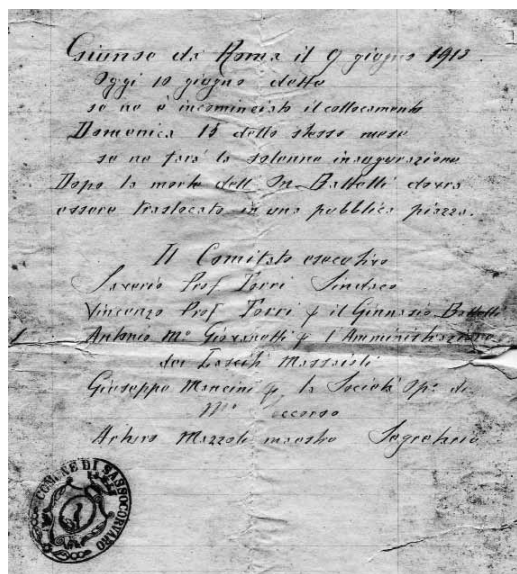 Giunse da Roma il 9 giugno 1913.
Oggi 10 giugno detto
se ne è incominciato il collocamento
Domenica 15 dello stesso mese
se ne farà la solenne inaugurazione
Dopo la morte dell'On. Battelli dovrà
essere traslocato in una pubblica piazza.
Il Comitato esecutivo
Saverio Prof Torri Sindaco
Vincenzo Prof Torri p il Ginnasio Battelli
Antonio Mº Giovanetti p l'Amministrazione
dei Lasciti Massaioli
Giuseppe Mancini p la Società Opª di
Mº occorso
Arturo Mazzoli maestro Segretario
COMUNE DI SASSOCORVARO